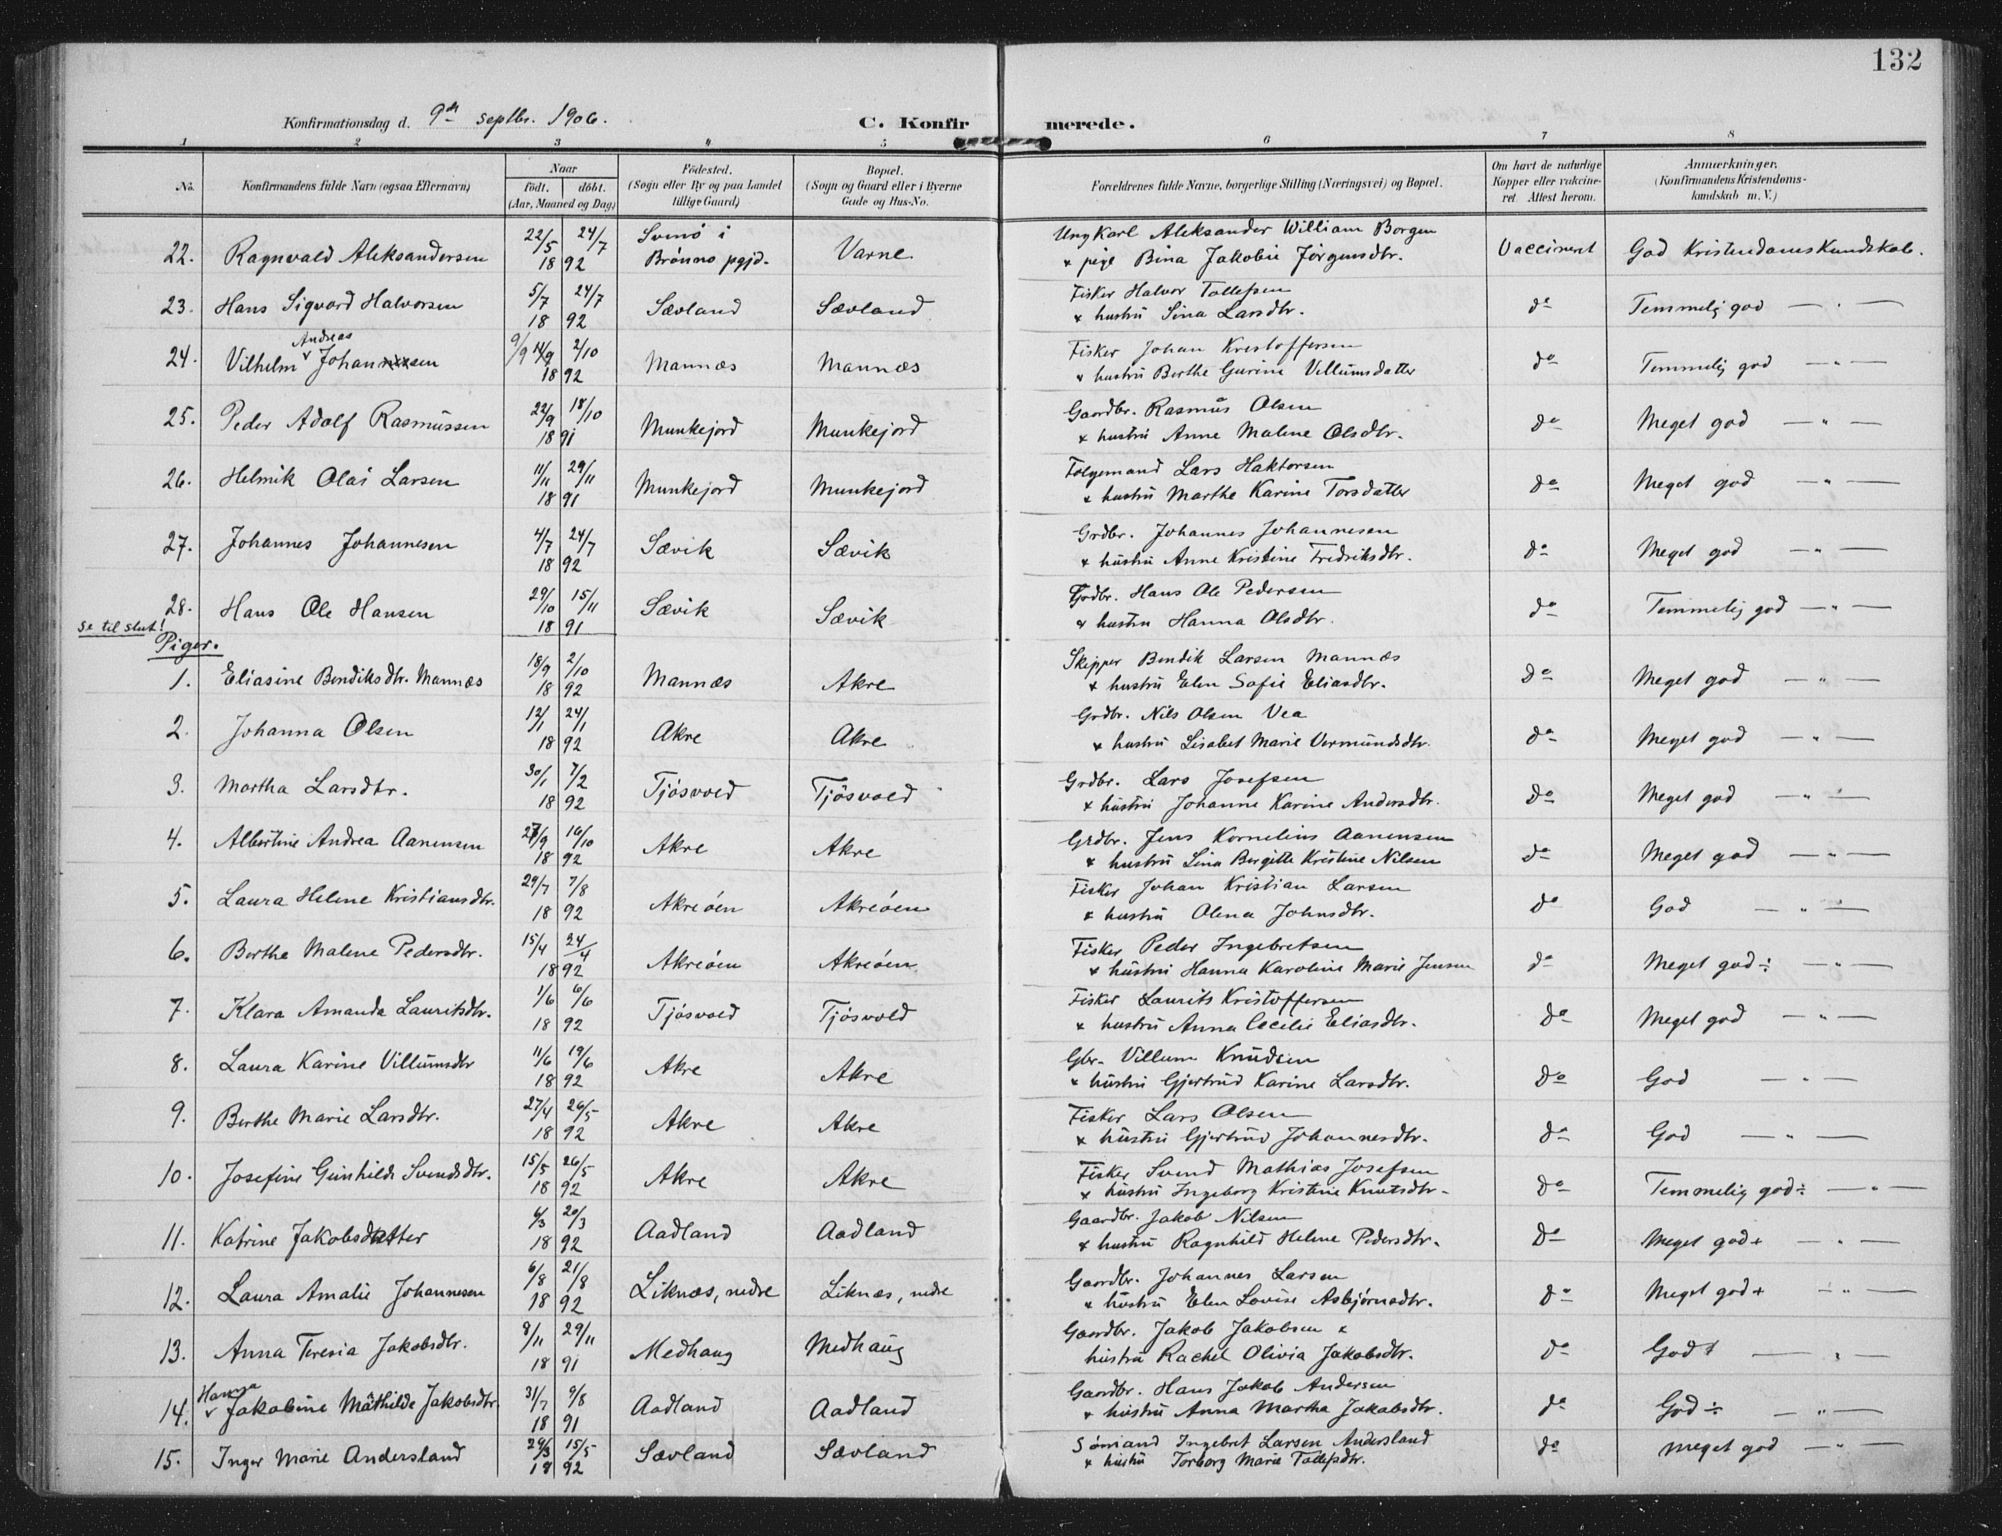 132
Konfirmationsdag d. 9de septbr. 1906. C. Konfirmerede.
1 2 3 4 5 6 7 8
No. Konfirmandens fulde Navn (ogsaa Efternavn) Naar født. døbt. (Aar, Maaned og Dag) Fødested. (Sogn eller By og paa Landet tillige Gaard) Bopæl. (Sogn og Gaard eller i Byerne Gade og Hus-No. Forældrenes fulde Navne, borgerlige Stilling (Næringsvei) og Bopæl. Om havt de naturlige Kopper eller vakcineret. Attest herom. Anmærkninger, (Konfirmandens Kristendomskundskab m. V.)
22. Ragnvald Aleksandersen 22/5 24/7 1892 Svinö i Brönnö pgjd. Varne Ungkarl Aleksander William Borgen
+ pige Bina Jakobie Jörgensdtr. Vaccinert God Kristendomskundskab.
23. Hans Sigvard Halvorsen 5/7 24/7 1892 Sævland Sævland Fisker Halvor Tollefsen
+ hustru Sina Larsdtr. do Temmelig god — " —
24. Vilhelm Andreas Johannesen 9/9 2/10 1892 Mannæs Mannæs Fisker Johan Kristoffersen
+ hustru Berthe Gurine Villumsdatter do Temmelig god — " —
25. Peder Adolf Rasmussen 22/9 18/10 1891 Munkejord Munkejord Gaardbr. Rasmus Olsen
+ hustru Anne Malene Olsdtr. do Meget god — " —
26. Helmik Olai Larsen 11/11 29/11 1891 Munkejord Munkejord Folgemand Lars Haktorsen
+ hustru Marthe Karine Torsdatter do Meget god — " —
27. Johannes Johannesen 4/7 24/7 1892 Sævik Sævik Grdbr. Johannes Johannesen
+ hustru Anne Kristine Fredriksdtr. do Meget god — " —
28. Hans Ole Hansen 29/10 15/11 1891 Sævik Sævik Grdbr. Hans Ole Pedersen
+ hustru Hanna Olsdtr. do Temmelig god — " —
se til slut!
Piger.
1. Eliasine Bendiksdtr. Mannæs 18/9 2/10 1892 Mannæs Akre Skipper Bendik Larsen Mannæs
+ hustru Elen Sofie Eliasdtr. do Meget god — " —
2. Johanna Olsen 12/1 24/1 1892 Akre Akre Grdbr. Nils Olsen Vea
+ hustru Lisabet Marie Vermundsdtr. do Meget god — " —
3. Martha Larsdtr. 30/1 7/2 1892 Tjösvold Tjösvold Grdbr. Lars Josefsen
+ hustru Johanne Karine Andersdtr. do Meget god — " —
4. Albertine Andrea Aanensen 27/9 16/10 1892 Akre Akre Grdbr. Jens Kornelius Aanensen
+ hustru Lina Bergitte Kristine Nilsen do Meget god — " —
5. Laura Helene Kristiansdtr. 29/7 7/8 1892 Akreöen Akreöen Fisker Johan Kristian Larsen
+ hustru Olena Johnsdtr. do God — " —
6. Berthe Malene Pedersdtr. 15/4 24/4 1892 Akreöen Akreöen Fisker Peder Ingebretsen
+ hustru Hanna Karoline Marie Jensen do Meget god÷ — " —
7. Klara Amanda Lauritsdtr. 1/6 6/6 1892 Tjösvold Tjösvold Fisker Laurits Kristoffersen
+ hustru Anna Cecilie Eliasdtr. do Meget god — " —
8. Laura Karine Villumsdtr 11/6 19/6 1892 Akre Akre Gbr. Villum Knudsen
+ hustru Gjertrud Karine Larsdtr. do God — " —
9. Berthe Marie Larsdtr. 27/4 26/5 1892 Akre Akre Fisker Lars Olsen
+ hustru Gjertrud Johannesdtr. do God — " —
10. Josefine Gunhilde Svendsdtr. 15/5 26/5 1892 Akre Akre Fisker Svend Mathias Josefsen
+ hustru Ingeborg Kristine Knutsdtr. do Temmelig god÷ — " —
11. Katrine Jakobsdatter 6/3 20/3 1892 Aadland Aadland Gaardbr. Jakob Nilsen
+ hustru Ragnhild Helene Pedersdtr. do Meget god+ — " —
12. Laura Amalie Johannesen 6/8 21/8 1892 Liknæs, nedre Liknæs, nedre Gaardbr. Johannes Larsen
+ hustru Elen Lovise Asbjörnsdtr. do Meget god+ — " —
13. Anna Teresia Jakobsdtr. 8/11 29/11 1891 Medhaug Medhaug Gaardbr. Jakob Jakobsen +
hustru Rachel Olivia Jakobsdtr. do God+ — " —
14. Hanna Jakobine Mathilde Jakobsdtr. 31/7 9/8 1891 Aadland Aadland Gaardbr. Hans Jakob Andersen
+ hustru Anna Martha Jakobsdtr. do God÷ — " —
15. Inger Marie Andersland 29/3 15/5 1892 Sævland Sævland Sömand Ingebret Larsen Andersland
+ hustru Torborg Marie Tollefsdtr. do Meget god — " —